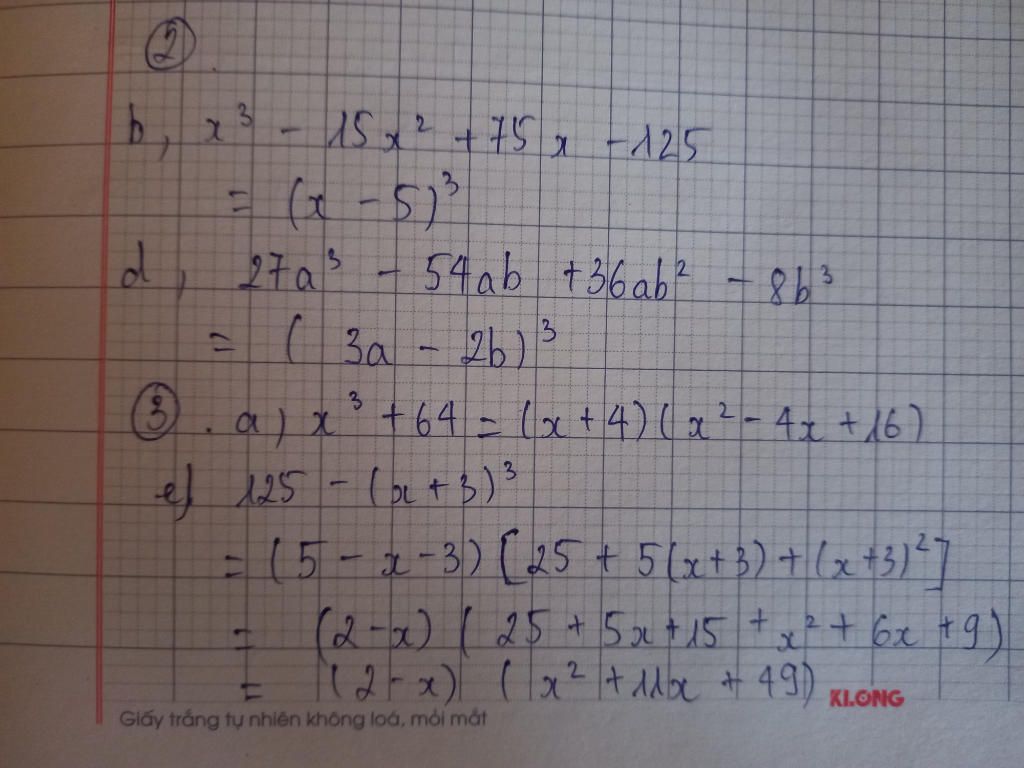 ②.
b, x³ - 15x² + 75x - 125
= (x - 5)³
d, 27a³ - 54ab + 36ab² - 8b³
= ( 3a - 2b)³
③. a) x³ + 64 = (x + 4)(x² - 4x + 16)
e) 125 - (x + 3)³
= (5 - x - 3) [25 + 5(x+3) + (x+3)²]
= (2 - x) ( 25 + 5x + 15 + x² + 6x + 9)
= (2 - x) (x² + 11x + 49)
KLONG
Giấy trắng tự nhiên không loá, mỏi mắt